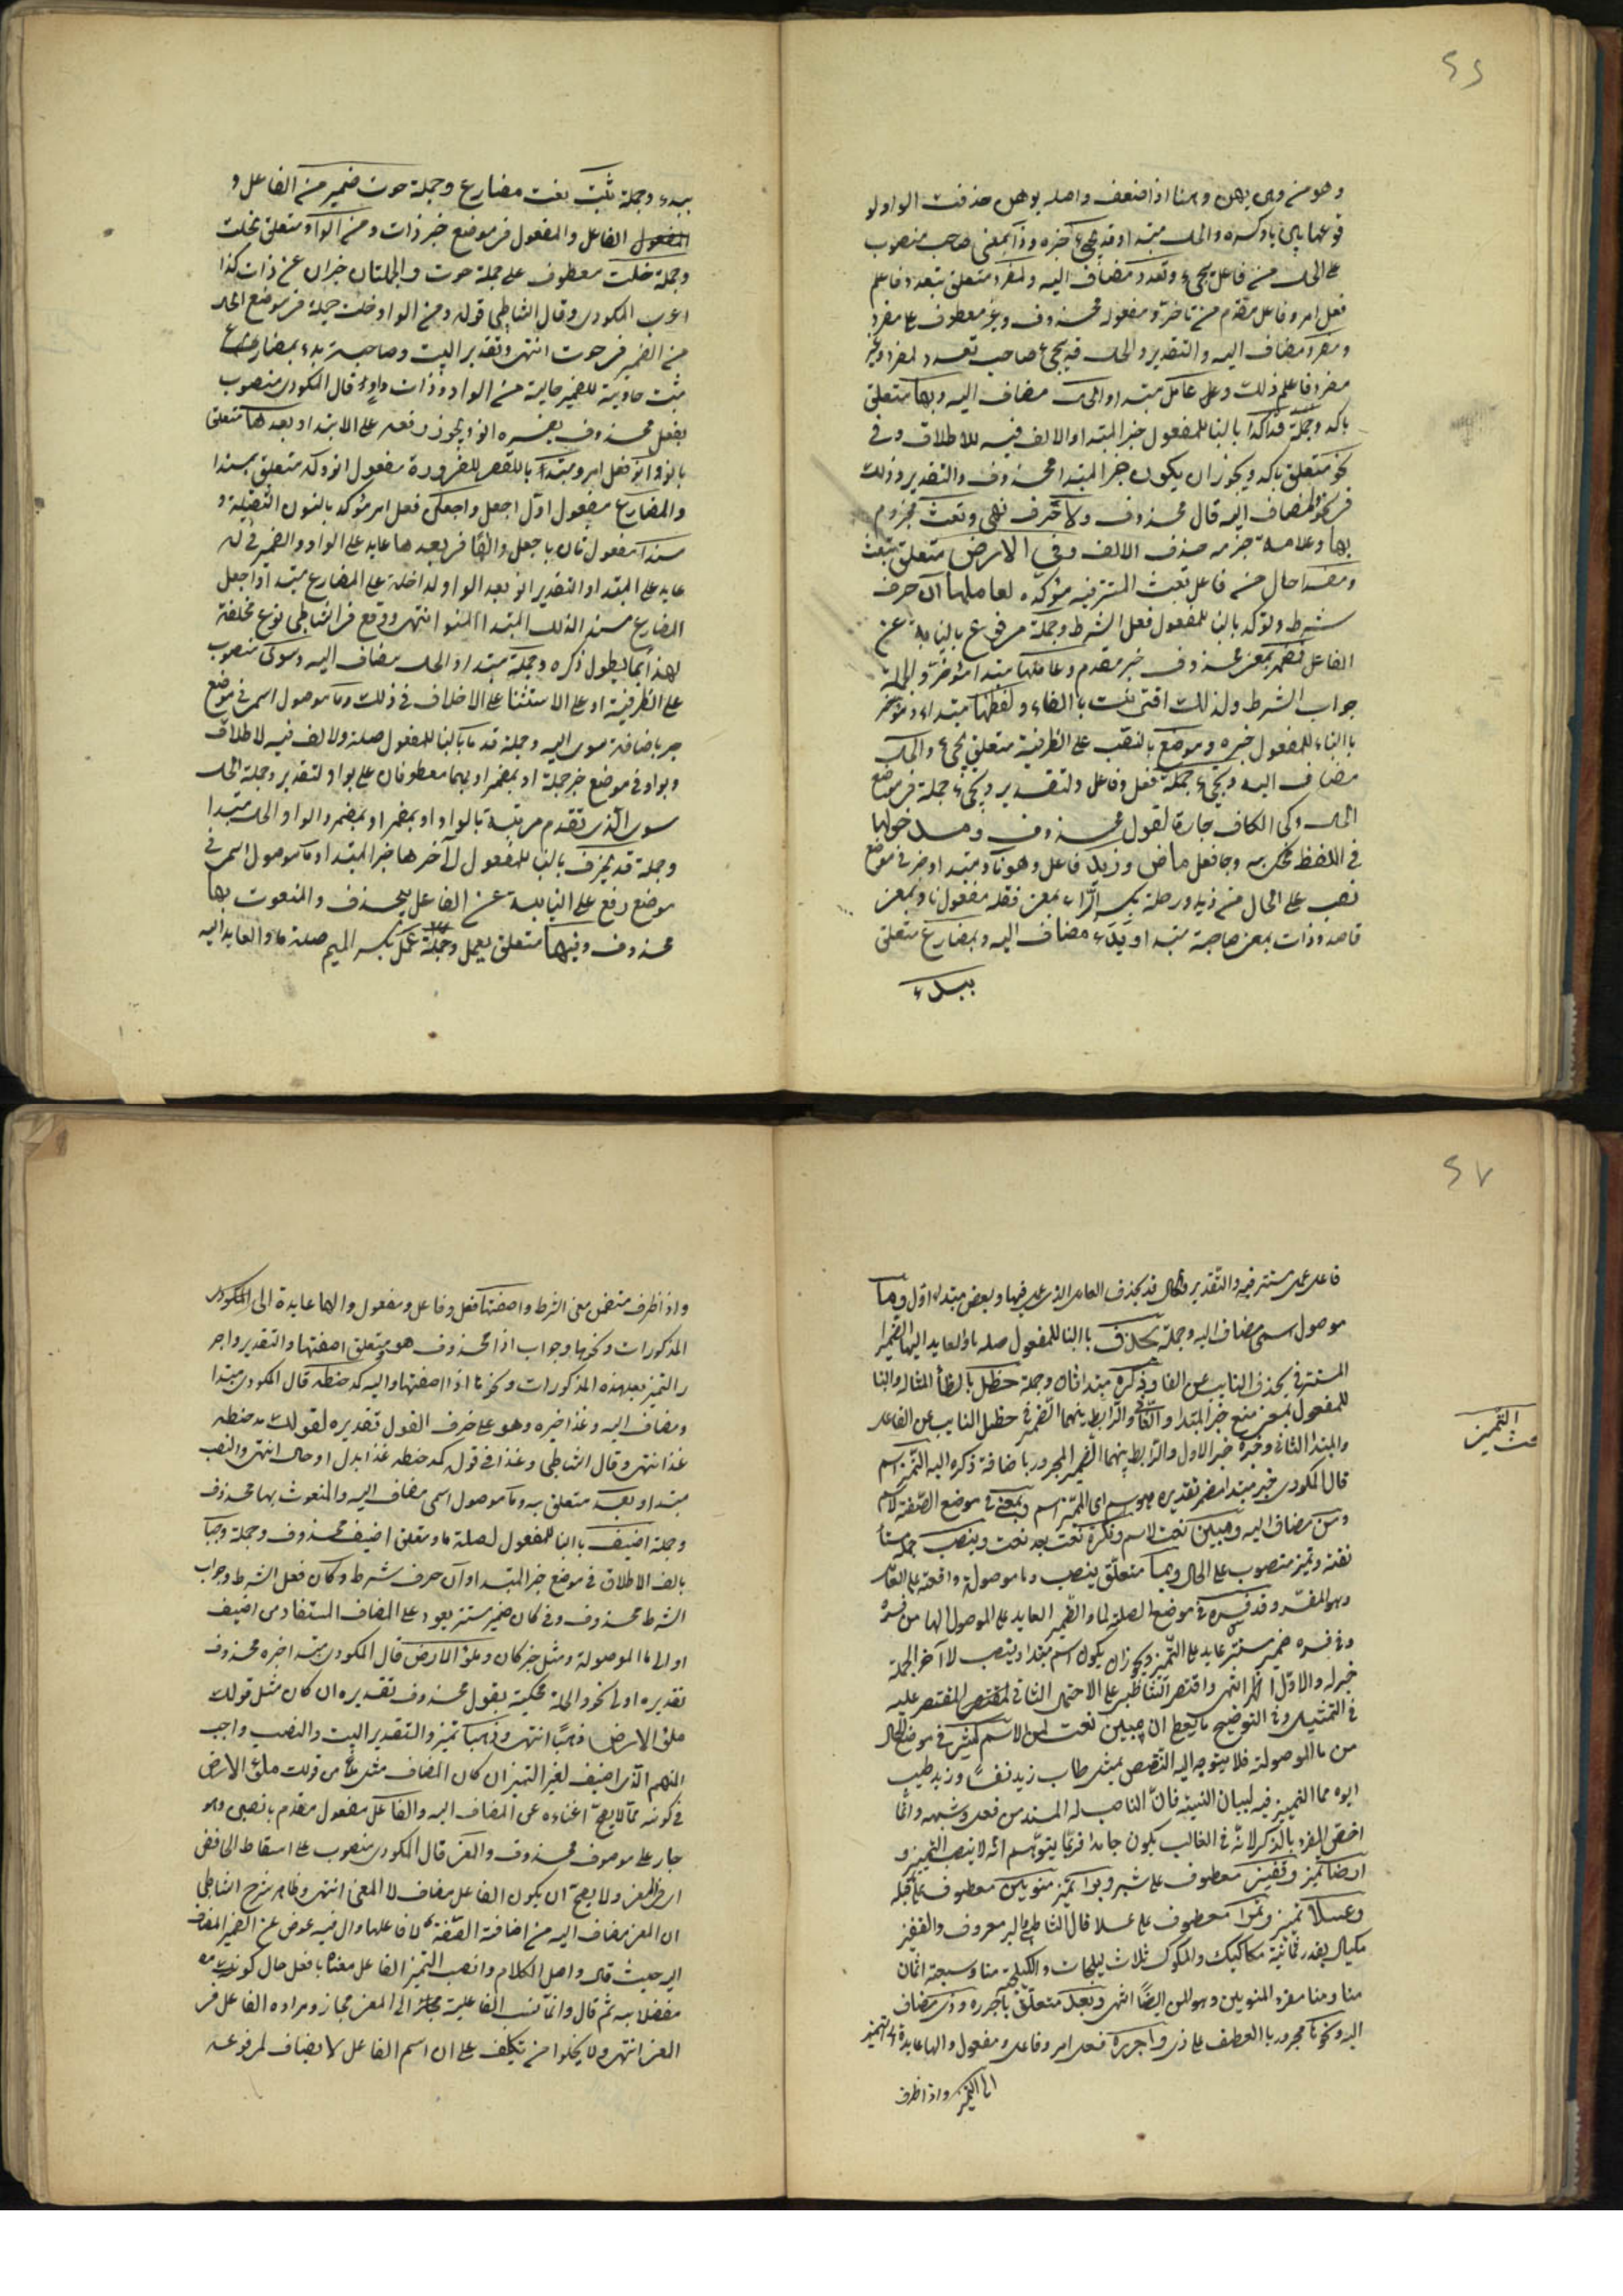 ٤٦
وهو من وهى يهى وهنا اذا ضعف واصله يوهن حذفت الواو لو
قوعها بين ياء وكسره والحال مبتدا وقد يجيء خبره وذا بمعنى صاحب منصوب
على الحال من فاعل يجيء وتعدد مضاف اليه ولمفرد متعلق بتعدد فاعلم
فعل امر وفاعل مقدم من تاخر ومفعوله محذوف وغير معطوف على مفرد
ومفرد مضاف اليه والتقدير والحال قد يجيء صاحب تعدد لمفرد وغير
مفرد فاعلم ذلك وعامل مبتدا والحال مضاف اليه وبها متعلق
باكد وجملة قد اكدا بالبنا للمفعول خبر المبتدا والالف فيه للاطلاق وفي
نحو متعلق باكد ويجوز ان يكون خبر المبتدا محذوف والتقدير وذلك
في نحو المضاف اليه قال محذوف ولا حرف نهى وتعث مجزوم
بها وعلامة جزمه حذف الالف وفي الارض متعلق بتعث
ومفسدا حال من فاعل تعث المستتر فيه مؤكده لعاملها ان حرف
شرط وتؤكد بالبنا للمفعول فعل الشرط وجملة مرفوع بالنيابة عن
الفاعل فمضمر بمعنى محذوف خبر مقدم وعاملها مبتدا مؤخر والجملة
جواب الشرط ولذلك اقترنت بالفاء ولفظها مبتداء ويؤخر
بالبناء للمفعول خبره وموضع بالنصب على الظرفية متعلق بتجيء والحال
مضاف اليه وتجيء جملة فعل وفاعل والتقدير وتجيء جملة في موضع
الحال وكجا الكاف جارة لقول محذوف ومدخولها
في اللفظ محكى به وجا فعل ماض وزيد فاعل وهو ناو مبتدا وخبر في موضع
نصب على الحال من زيد ورحلة بكسر الراء بمعنى نقله مفعول ناو بمعنى
قاصد وذات بمعنى صاحبة مبتدا وبدء مضاف اليه وبمضارع متعلق
ببدء
ببدء وجملة ثبت نعت مضارع وجملة حوت ضمير من الفاعل و
المفعول الفاعل والمفعول في موضع خبر ذات ومن الواو متعلق بخلت
وجملة خلت معطوف على جملة حوت والجملتان خبران عن ذات كذا
اعرب المكودى وقال الشاطبى قوله ومن الواو خلت جملة في موضع الحال
من الضمير في حوت انتهى وتقدير البيت وصاحبة بدء بمضارع
مثبت حاوية للضمير خالية من الواو وذات واو قال المكودى منصوب
بفعل محذوف يفسره انو ويجوز رفعه على الابتدا وبعدها متعلق
بانو وانو فعل امر ومبتدا بالقصر للضرورة مفعول انو وله متعلق بمسندا
والمضارع مفعول اول اجعل واجعلن فعل امر مؤكد بالنون الثقيلة و
مسندا مفعول ثان باجعل والها في بعدها عايد على الواو والضمير في له
عايد على المبتدا والتقدير انو بعد الواو الداخلة على المضارع مبتدا واجعل
المضارع مسندا لذلك المبتدا المنوى انتهى ووقع في الشاطبى نوع مخالفة
لهذا مما يطول ذكره وجملة مبتدا والحال مضاف اليه وسوى منصوب
على الظرفية او على الاستثنا على الاختلاف في ذلك وما موصول اسمى في موضع
جر باضافة سوى اليه وجملة قدما بالبنا للمفعول صلة والالف فيه للاطلاق
وبواو في موضع خبر جملة او بمضمر او بهما معطوفان على بواو التقدير وجملة الحال
سوى الذى تقدم مرتبة بالواو او بمضمر او بمضمر والواو والحال مبتدا
وجملة قد يحذف بالبنا للمفعول الى آخرها خبر المبتدا وما موصول اسمى في
موضع رفع على النيابية عن الفاعل بيحذف والمنعوت بها
محذوف وفيها متعلق بعمل وجملة عمل بكسر الميم صلة ما والعايد اليه
٤٧
فاعل عمل مستتر فيه والتقدير والحال قد يحذف العامل الذى عمل فيها وبعض مبتداء اول وما
موصول اسمى مضاف اليه وجملة يحذف بالبنا للمفعول صلة ما والعايد اليها الضمير
المستتر في يحذف النايب عن الفاعل وذكره مبتدا ثان وجملة حظل بالظا المشالة والبنا
للمفعول بمعنى منع خبر المبتدا والثانى والرابط بينهما الضمير في حظل النايب عن الفاعل
والمبتدا الثانى وخبره خبر الاول والرابط بينهما الضمير المجرور باضافة ذكره اليه التمييز اسم
قال المكودى خبر مبتدا مضمر تقديره هو اسم اى المميز اسم وبمعنى في موضع الصفة لاسم
ومن مضاف اليه ومبين نعت لاسم ونكرة نعت بعد نعت وينصب جملة مستأ
نفة وتمييز منصوب على الحال وبما متعلق بينصب وما موصولة واقعة على العامل
وهو المفسر وقد فسره في موضع الصلة لما والضمير العايد على الموصول الها من فسره
وفي فسره ضمير مستتر عايد على التمييز ويجوز ان يكون اسم مبتدا وينصب لا آخر الجملة
خبر له والاول اظهر انتهى واقتصر الشاطبى على الاحتمال الثانى المقتصر عليه
في التمثيل وفي التوضيح ما يعطى ان مبين نعت لمن الاسم كبشير في موضع الحال
من ما الموصولة فلا يتوجه اليه النقص بمثل طاب زيد نفسا وزيد طيب
ابوه مما التمييز فيه لبيان النسبة فان الناصب له المسند من فعل وشبهه وانما
اختص المفرد بالذكر لانه في الغالب يكون جامدا فربما يتوهم انه لا ينصب التمييز و
ارضا تمييز وقفيز معطوف على شبر وبرا تمييز منوين معطوف على قبله
وعسلا تمييز وتمرا معطوف على عسلا قال الشاطبى والبر معروف والقفيز
مكيال يقدر ثمانية مكاكيك والمكوك ثلاث كيلجات والكيلجة منا وسبعة اثمان
منا ومنا مفرد المنوين وهو المن ايضا انتهى وبعد متعلق باجرره وذى مضاف
اليه ونحوها مجرور بالعطف على ذى واجرره فعل امر وفاعل ومفعول والها عايدة الى التمييز
واذا ظرف
التمييز
بحث
واذا ظرف متضمن معنى الشرط واضفتها فعل وفاعل ومفعول والها عايدة الى المكودى
المذكورات ونحوها وجواب اذا محذوف هو ومتعلق اضفتها والتقدير واجر
ر التمييز بعد هذه المذكورات ونحوها اذا اضفتها واليه كمد حنطة قال المكودى مبتدا
ومضاف اليه وغذا خبره وهو على حذف القول تقديره لقولك مد حنطة
غذا انتهى وقال الشاطبى وغذا في قوله كمد حنطة غذا بدل او حال انتهى والنصب
مبتدا وبعد متعلق به وما موصول اسمى مضاف اليه والمنعوت بها محذوف
وجملة اضيف بالبنا للمفعول لصلة ما ومتعلق اضيف محذوف وجملة وجبا
بالف الاطلاق في موضع خبر المبتدا وان حرف شرط وكان فعل الشرط وجواب
الشرط محذوف وفي كان ضمير مستتر يعود على المضاف المستفاد من اضيف
او الى ما الموصولة ومثل خبر كان وملؤ الارض قال المكودى مبتدا خبره محذوف
تقديره اولى نحو والجملة محكية بقول محذوف تقديره ان كان مثل قولك
ملؤ الارض ذهبا انتهى وذهبا تمييز والتقدير البيت والنصب واجب
المبهم الذى اضيف لغير التمييز ان كان المضاف مثل ملء من قولك ملء الارض
في كونه مما لا يصح اغناءه عن المضاف اليه والفاعل مفعول مقدم بانصبن وهو
جار على موصوف محذوف والمعنى قال المكودى منصوب على اسقاط الخافض
اى في المعنى ولا يصح ان يكون الفاعل مضاف لا المعنى انتهى وظاهر شرح الشاطبى
ان المعنى مضاف اليه من اضافة الصفة لفاعلها وال فيه عوض عن الضمير المضاف
اليه حيث قال واصل الكلام وانصب التمييز الفاعل معناه بافعل حال كونه
مفضلا به ثم قال وانما نسب الفاعلية الى المعنى مجاز ومراده الفاعل في
المعنى انتهى ولا يخلوا من تكلف على ان اسم الفاعل لا يضاف لمرفوعه